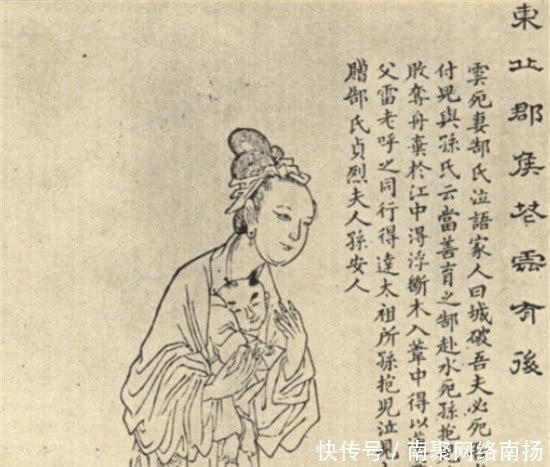 東丘郡侯花雲有後
雲死妻郜氏泣語家人曰城破吾夫必死
付兒與孫氏云當善育之郜赴水死孫抱
敗奪舟棄於江中得浮斷木入葦中得以
父雷老呼之同行得達太祖所孫抱兒泣見
贈郜氏貞烈夫人孫安人
快传号 / 南聚网络南扬